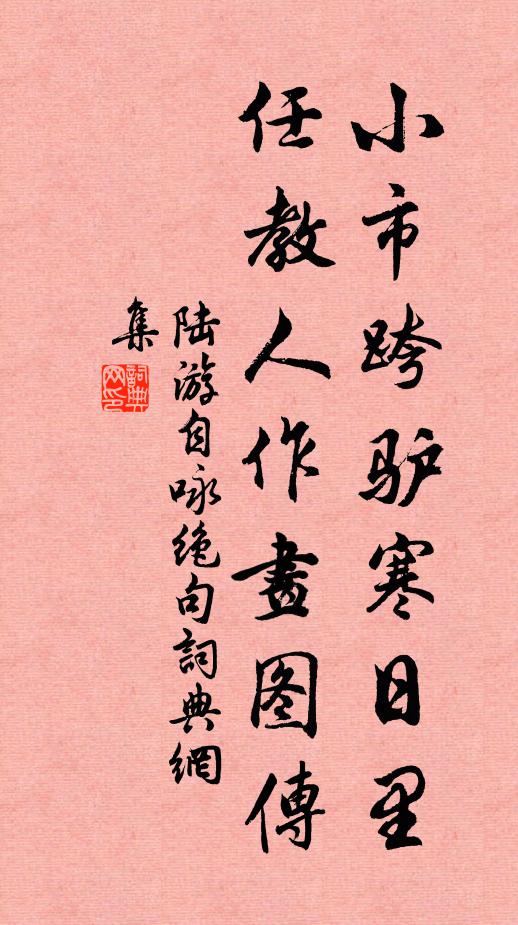 小市跨驴寒日里
任教人作畫图傳
陆游自咏绝句詞典網
集
詞典网印